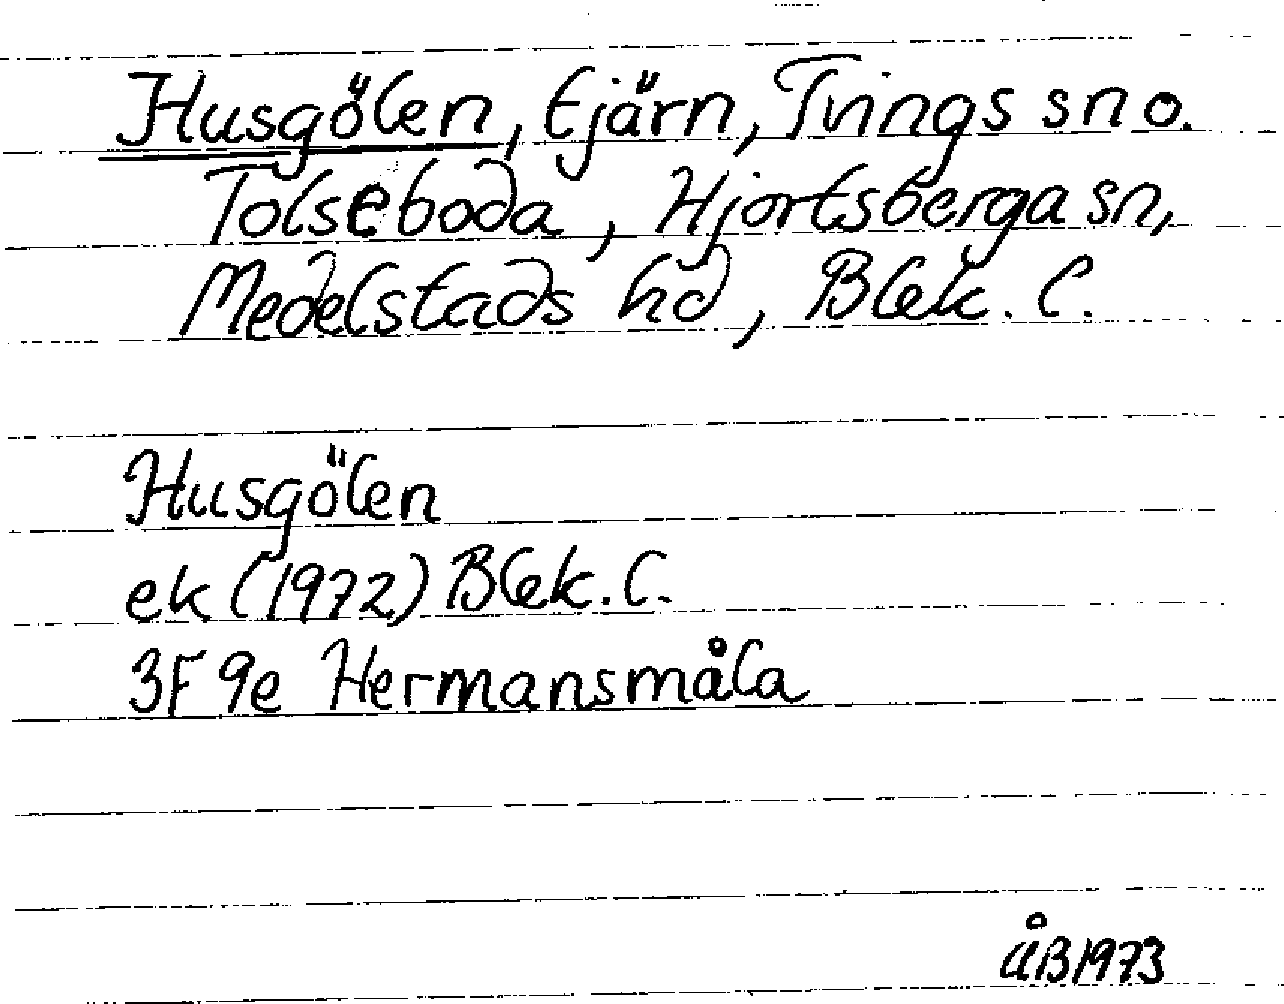 Husgölen, tjärn, Tvings sn o.
Tolseboda, Hjortsberga sn,
Medelstads hd, Blek. l.
Husgölen
ek (1972) Blek. l.
3F 9e Hermansmåla
ÅB 1973